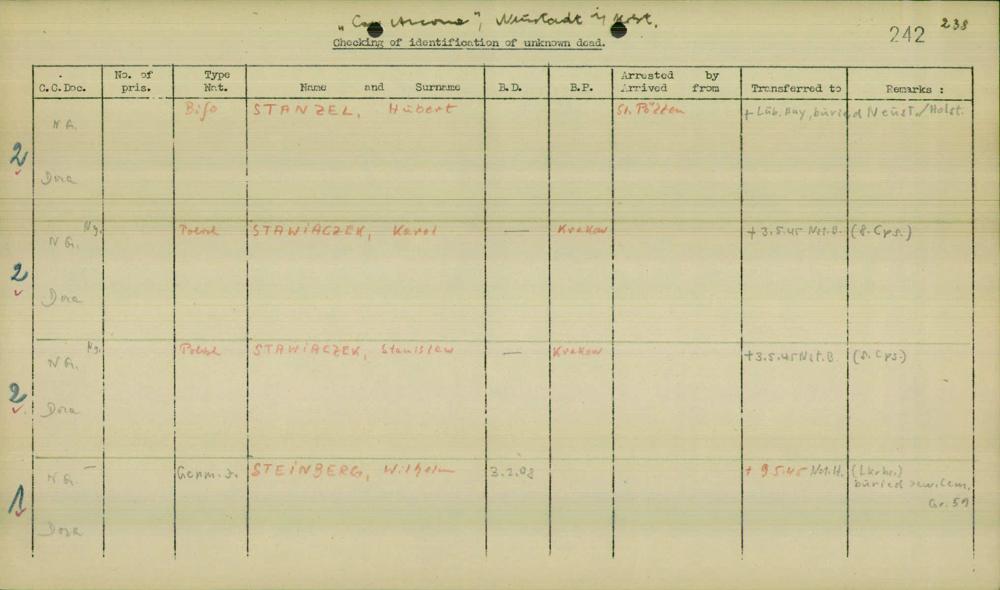 „Cap Arcona", Neustadt i/ Holst.
242 238
Checking of identification of unknown dead.
C.C.Doc. No. of pris. Type Nat. Name and Surname B.D. B.P. Arrested by Arrived from Transferred to Remarks :
N G. STANZEL, Hubert St. Pölten + Lüb. Bay, buried Neust./Holst.
2
Dora
N G. Ng. Polish STAWIACZEK, Karol — Krakow + 3.5.45 Nst. B. (s. Cps.)
2
Dora
N G. Ng. Polish STAWIACZEK, Stanislaw — Krakow + 3.5.45 Nst. B. (s. Cps.)
2
Dora
N G. — Germ. J. STEINBERG, Wilhelm 3.2.08 + 9.5.45 Nst. H. (Lkrhs.)
buried Jew. Cem.
1
Gr. 59
Dora